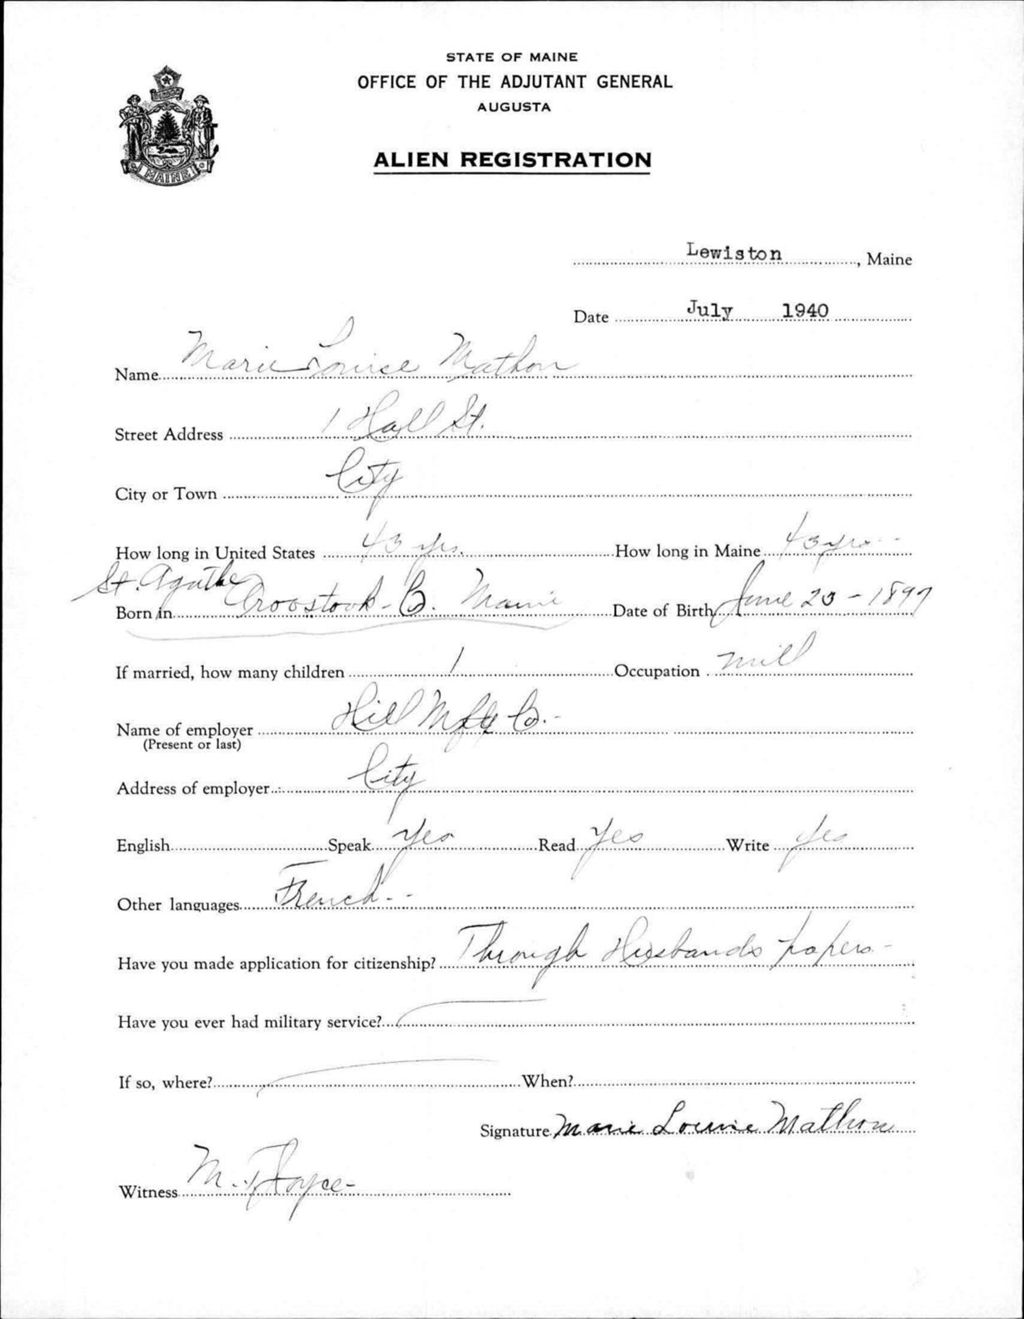 STATE OF MAINE
OFFICE OF THE ADJUTANT GENERAL
AUGUSTA
MAINE
ALIEN REGISTRATION
Lewiston, Maine
Date July 1940
Name Marie Louise Mathon
Street Address 1 Hall St.
City or Town City
How long in United States 43 yrs. How long in Maine 43 yrs
St. Agathe
Born in Aroostook Co. Maine Date of Birth June 20 - 1897
If married, how many children 1 Occupation Mill
Name of employer Hill Mfg Co.
(Present or last)
Address of employer City
English Speak Yes Read Yes Write Yes
Other languages French
Have you made application for citizenship? Through Husbands papers
Have you ever had military service?
If so, where? When?
Signature Marie Louise Mathon
Witness M.